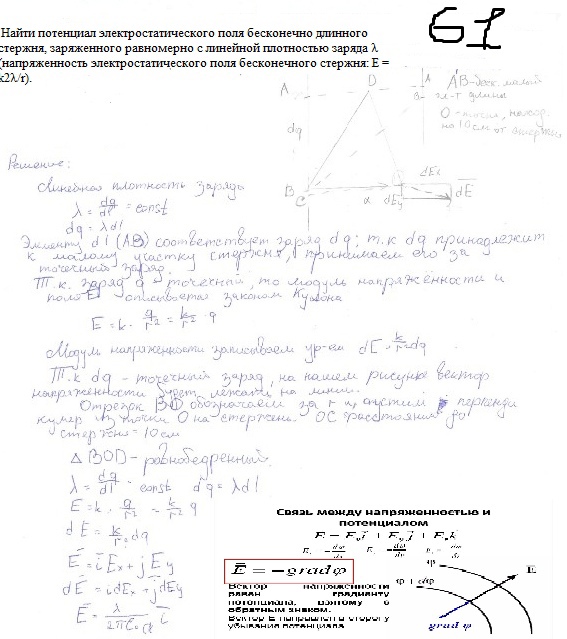 61
Найти потенциал электростатического поля бесконечно длинного
стержня, заряженного равномерно с линейной плотностью заряда λ
(напряженность электростатического поля бесконечного стержня: E =
k2λ/r).
A D A A'B - беск. малый
эл-т длины
dq O - точка, наход.
на 10 см от стержня
Решение:
Линейная плотность заряда
λ = dq/dl = const
dq = λdl
B C α dEx dEy dE
Элементу dl (AB) соответствует заряд dq; т.к dq принадлежит
к малому участку стержня, принимаем его за
точечный заряд.
Т.к. заряд q точечный, то модуль напряжённости и
поле E описывается законом Кулона
E = k · q/r² = k/r² · q
Модуль напряженности записываем ур-ем dE = k/r² dq
Т.к dq - точечный заряд, на нашем рисунке вектор
напряжённости будет лежать на линии.
Отрезок BO обозначаем за r и опустим перпенди
куляр из точки O на стержень. OC расстояние до
стержня = 10 см.
Δ BOD - равнобедренный.
λ = dq/dl = const dq = λdl
E = k · q/r² = k/r² q
dE = k/r² dq
E = iEx + jEy
dE = idEx + jdEy
Связь между напряженностью и
потенциалом
E = -grad φ
Вектор напряженности
равен градиенту
потенциала, взятому с
обратным знаком.
Вектор E направлен в сторону
убывания потенциала
φ E
φ + dφ
grad φ